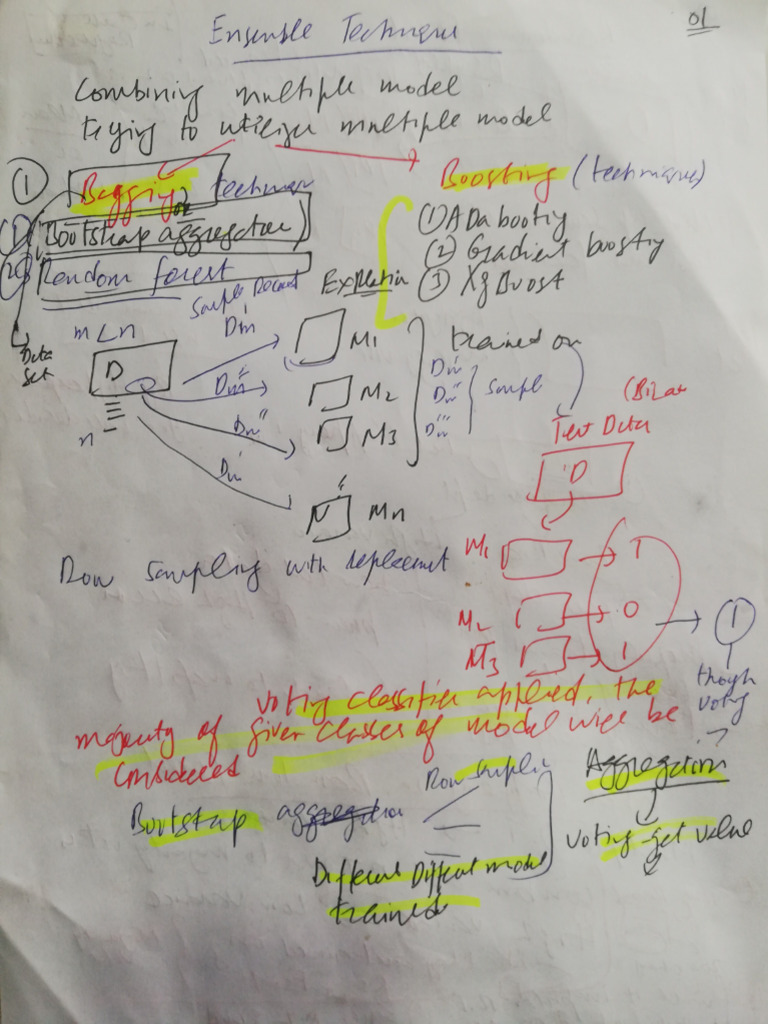 01
Ensemble Technique
Combining multiple model
trying to utilize multiple model
① Bagging technique
or
Bootstrap aggregation
② Random forest
Boosting (techniques)
① ADa boosting
② Gradient boosting
③ Xg Boost
Sample Record
m < n
Data
Set
D
n
Dm'
Dm''
Dm''
Dm'
M1
M2
M3
Mn
trained on
Dm'
Dm''
Dm'''
Sample
Test Data
D
M1 → 1
M2 → 0
M3 → 1
1
though
voting
Row sampling with replacemet
voting classifier applied, the
majority of given classes of model will be
considered
Bootstap aggregation
Row samplin
Different Diffent model
trained
Aggregation
voting get value